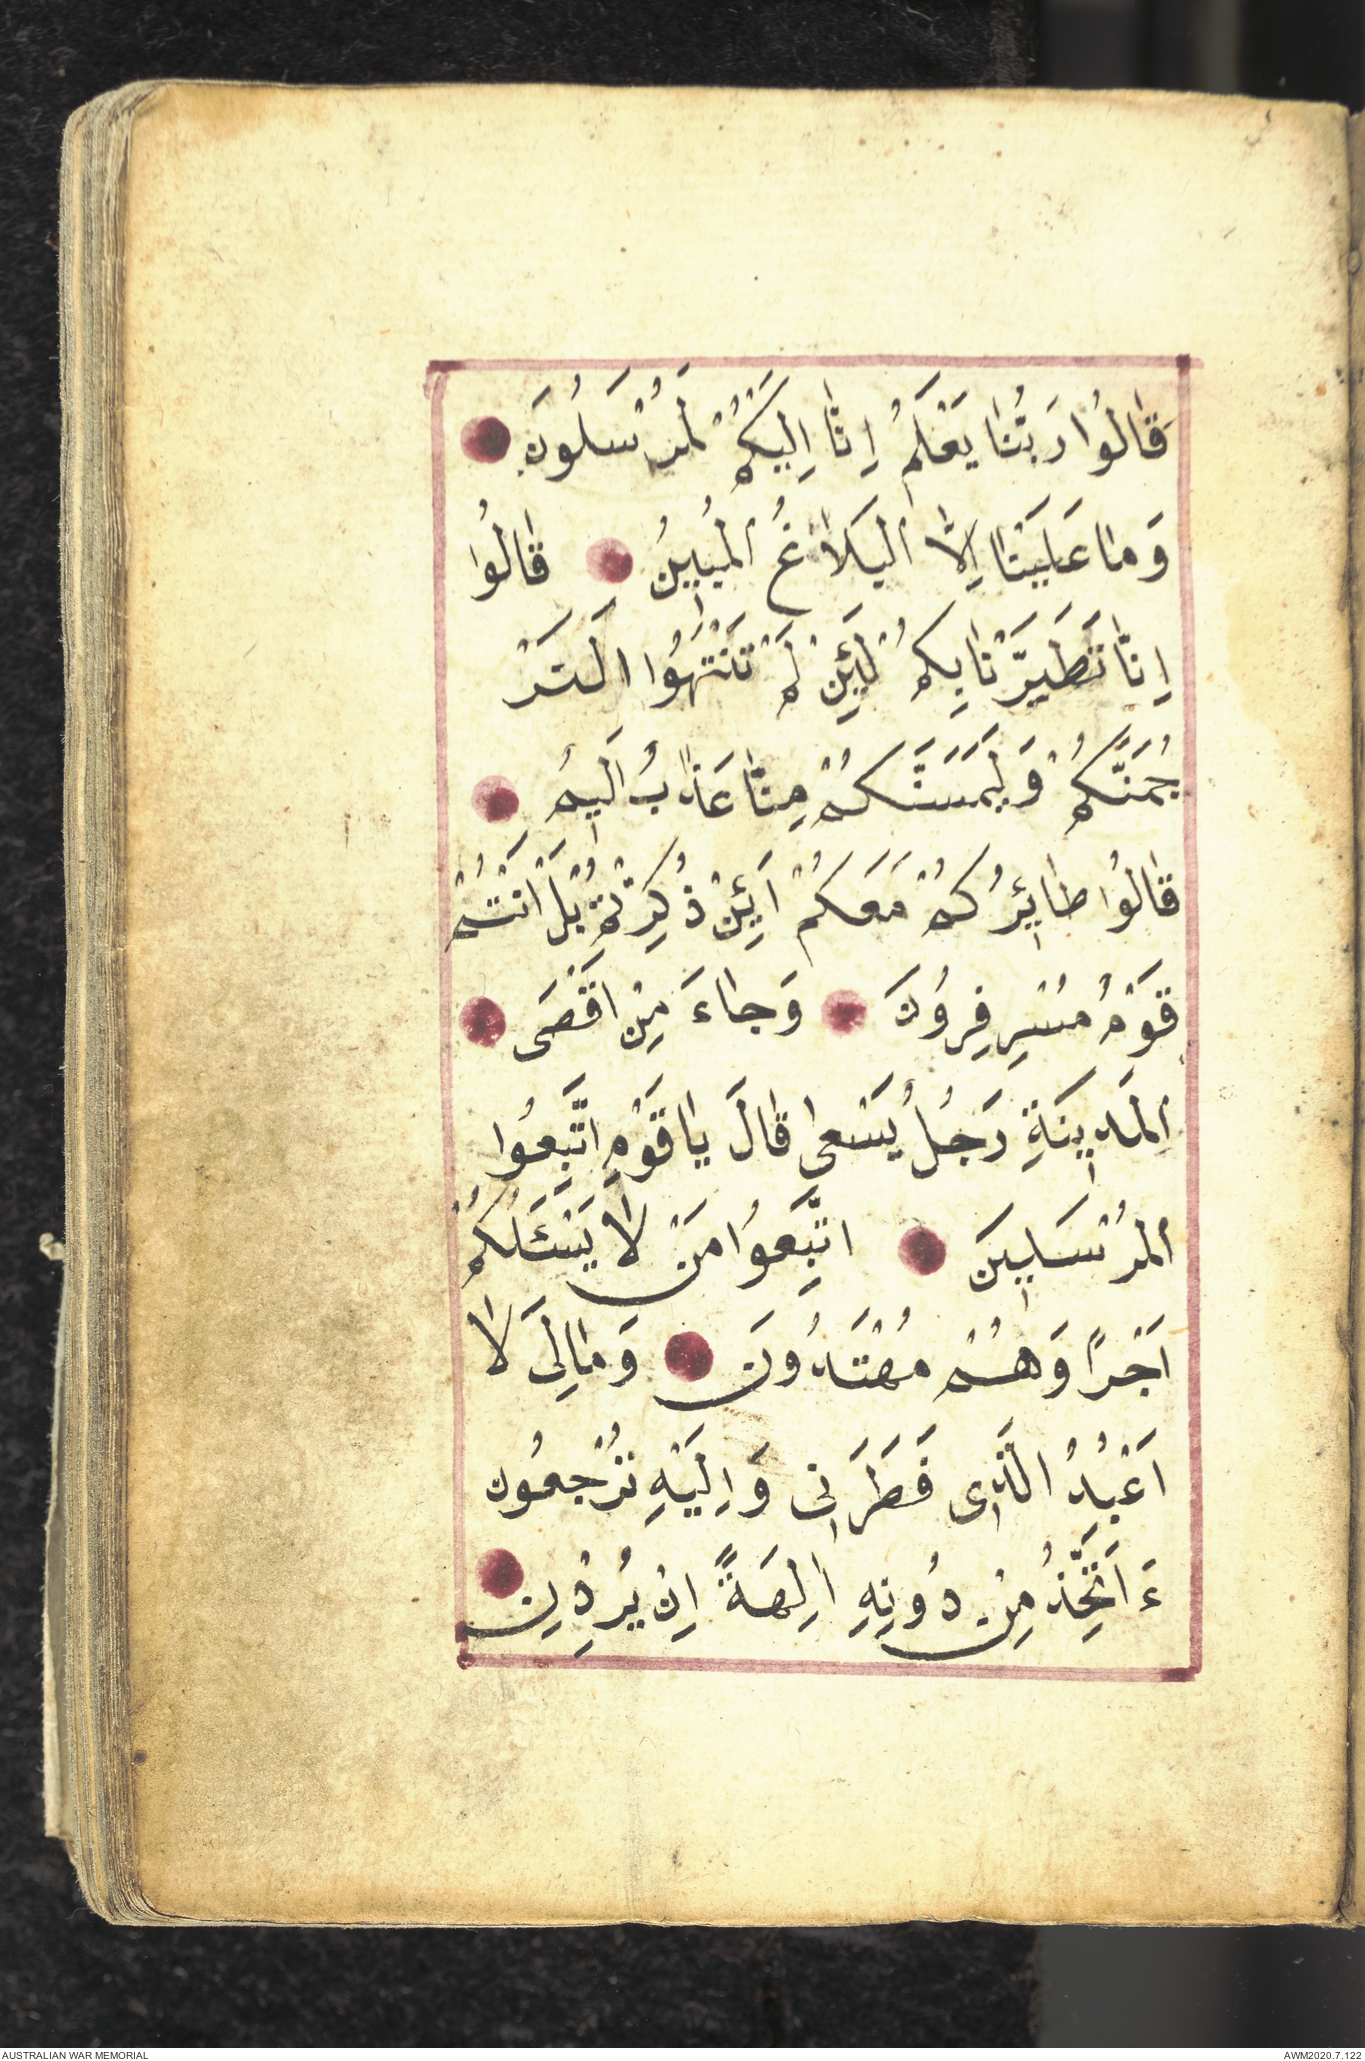 قَالُوا رَبُّنَا يَعْلَمُ اِنَّا اِلَيْكُمْ لَمُرْسَلُونَ
وَمَا عَلَيْنَا اِلَّا الْبَلَاغُ الْمُبِينُ قَالُوا
اِنَّا تَطَيَّرْنَا بِكُمْ لَئِنْ لَمْ تَنْتَهُوا لَنَرْ
جُمَنَّكُمْ وَلَيَمَسَّنَّكُمْ مِنَّا عَذَابٌ اَلِيمٌ
قَالُوا طَائِرُكُمْ مَعَكُمْ اَئِنْ ذُكِّرْتُمْ بَلْ اَنْتُمْ
قَوْمٌ مُسْرِفُونَ وَجَاءَ مِنْ اَقْصَى
الْمَدِينَةِ رَجُلٌ يَسْعٰى قَالَ يَا قَوْمِ اتَّبِعُوا
الْمُرْسَلِينَ اتَّبِعُوا مَنْ لَا يَسْئَلُكُمْ
اَجْرًا وَهُمْ مُهْتَدُونَ وَمَا لِىَ لَا
اَعْبُدُ الَّذِى فَطَرَنِى وَاِلَيْهِ تُرْجَعُونَ
ءَاَتَّخِذُ مِنْ دُونِهِ اٰلِهَةً اِنْ يُرِدْنِ
AUSTRALIAN WAR MEMORIAL
AWM2020.7.122